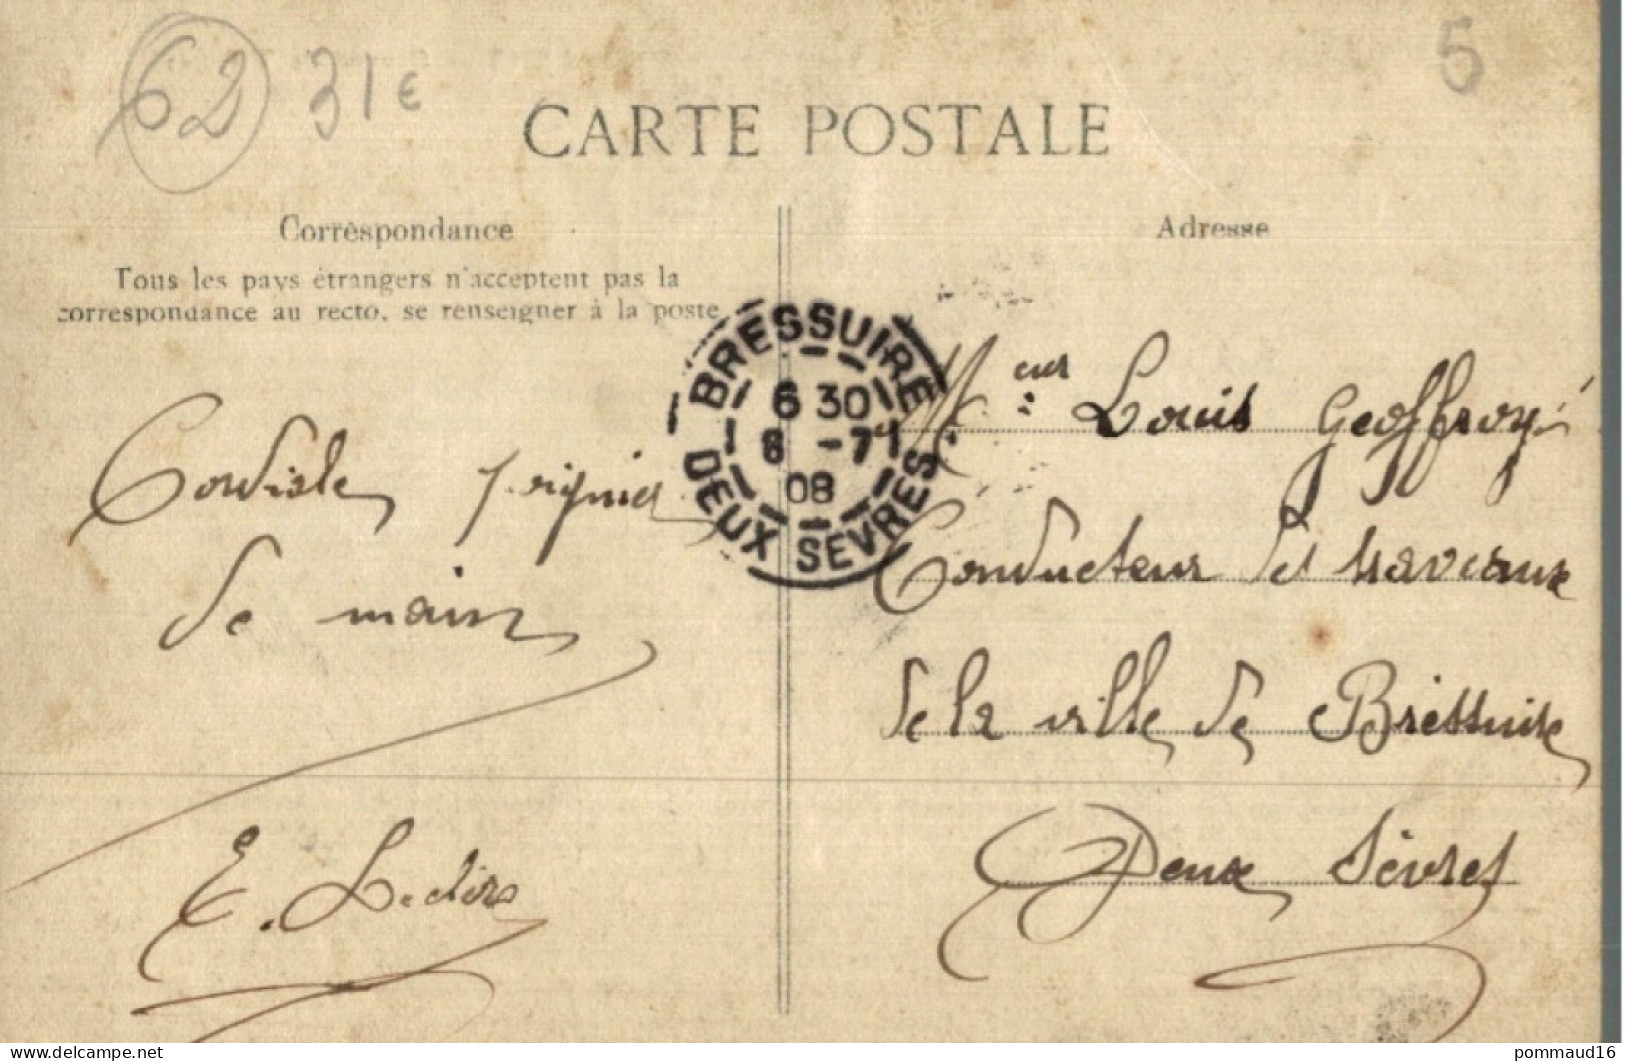 62 31€
5
CARTE POSTALE
Correspondance
Tous les pays étrangers n'acceptent pas la
correspondance au recto, se renseigner à la poste
Adresse
BRESSUIRE
6 30
8 -7
08
DEUX SÈVRES
Cordiale poignée
de main
E. Leclerc
Mr Louis Geoffroy
Conducteur des travaux
de la ville de Bressuire
Deux Sèvres
https://www.delcampe.net
pommaud16